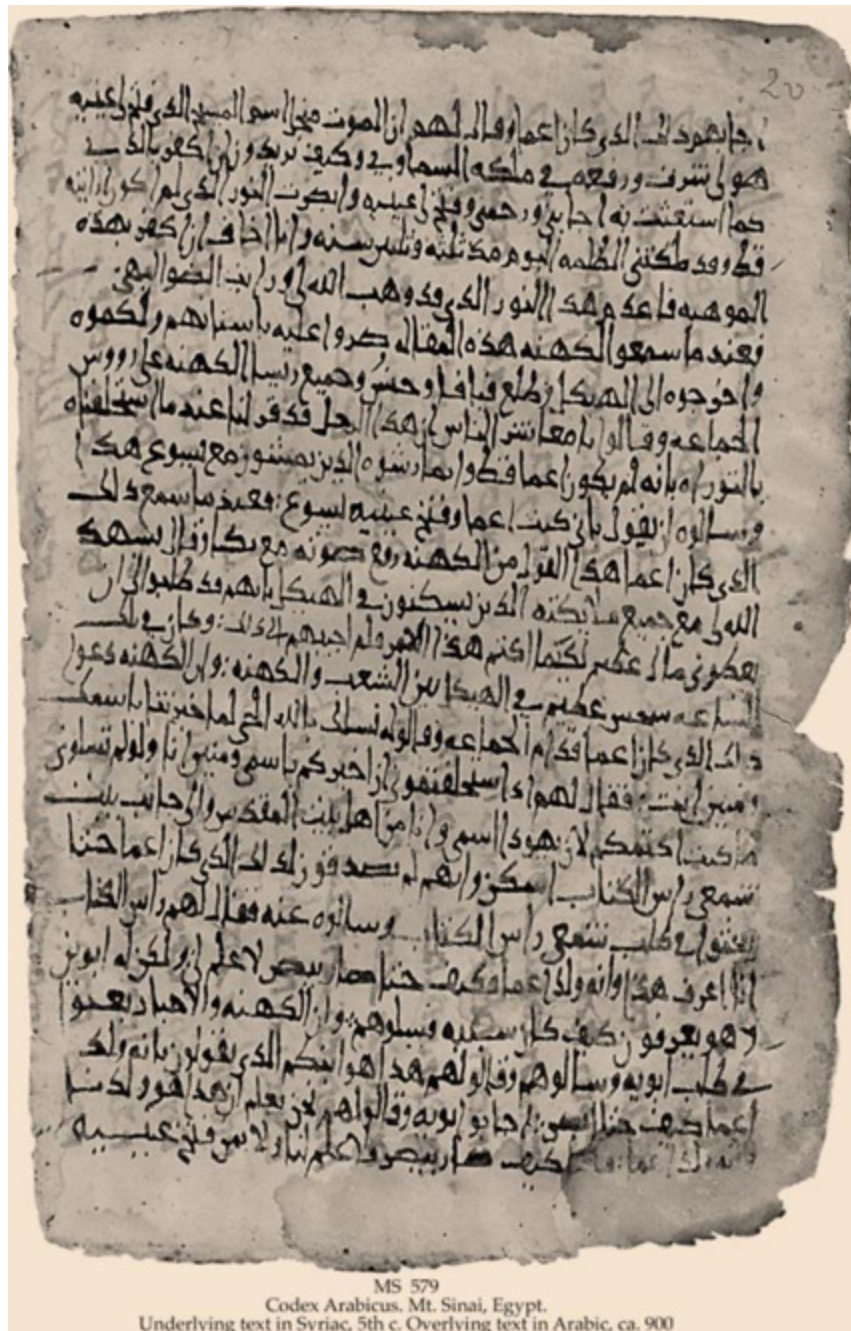 الذي كان اعما وقال لهم ان الصوت اسم المسيح الذي فتح لي عينيه
هو لي شرف ورفعه في ملكه السماوي وكيف تريدون ان اكفر بالذي
كما استغثت به اجابني ورحمني وفتح لي عينيه وابصرت النور الذي لم اكون رايته
قط وقد ملكتني الظلمه اليوم مذ ثلثه وثلثين سنه وانا اخاف ان اكفر بهذه
الموهبه فاعدم هذا النور الذي قد وهب الله لي ورايت الضو البهي
فعند ما سمعو الكهنه هذه المقاله صروا عليه باسنانهم ولكموه
واخرجوه الى الهيكل وطلع قيافا وحنن وجميع ريسا الكهنه على رووس
الجماعه وقالوا يا معاشر الناس ان هذا الرجل قد قر لنا عند ما استحلفناه
بالتوراه بانه لم يكون اعما قط وانما رشوه الذين يمشون مع يسوع هذا
وسالوه ان يقول باني كنت اعما وفتح عينيه يسوع فعند ما سمع ذلك
الذي كان اعما هذا القول من الكهنه رفع صوته مع بكا وقال يشهد
الله لي مع جميع ملايكته الذين يسكنون في الهيكل بانهم قد طلبوا الي ان
يعطوني مال عظيم لكيما اكتم هذا الامر ولم اجيبهم الى ذلك وكان في تلك
الساعه سجس عظيم في الهيكل بين الشعب والكهنه وان الكهنه دعوا
ذاك الذي كان اعما قدام الجماعه وقالو له نسالك بالله الحي لما خبرتنا باسمك
ومنين انت فقال لهم اذا استحلفتموني ان اخبركم باسمي ومنين انا ولو لم تسلوني
ما كنت اكتمكم لان يهودا اسمي وانا من اهل بيت المقدس والى جانب بيت
شمعي راس الكتاب اسكن وانهم لم يصدقون لذلك الذي كان اعما حتا
بعثوا في طلب شمعي راس الكتاب وسالوه عنه فقال لهم راس الكتاب
انا اعرف هذا وانه ولد اعما وكيف حتا صار يبصر لا علم لي ولكن له ابوين
لا هو يعرفون كيف كان سببه فسلوهم وان الكهنه والاحبار بعثوا
في طلب ابويه وسالوهم وقالو لهم هذا هو ابنكم الذي تقولون بانه ولد
اعما كيف حتا ابصر اجابو ابويه وقالوا لهم نحن نعلم ان هذا هو ولدنا
وانه ولد اعما كيف صار يبصر لا علم لنا ولا بمن فتح عينيه
MS 579
Codex Arabicus. Mt. Sinai, Egypt.
Underlying text in Syriac, 5th c. Overlying text in Arabic, ca. 900